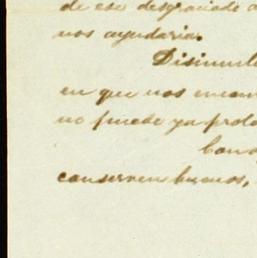 de ese desgraciado
nos ayudaria.
Disimule
en que nos
no puede ya
conserven buenos,